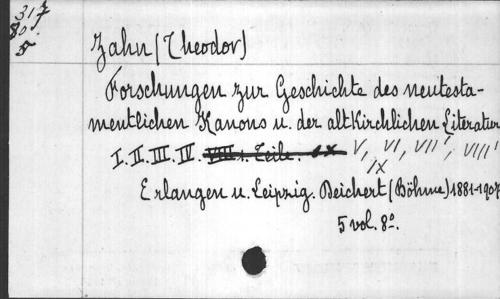 317
80.
5
Zahn (Theodor)
Forschungen zur Geschichte des neutesta-
mentlichen Kanons u. der altkirchlichen Literatur
I. II. III. IV. V, VI, VII, VIII
IX
Erlangen u. Leipzig. Deichert (Böhme) 1881-1907
5 vol. 8º.